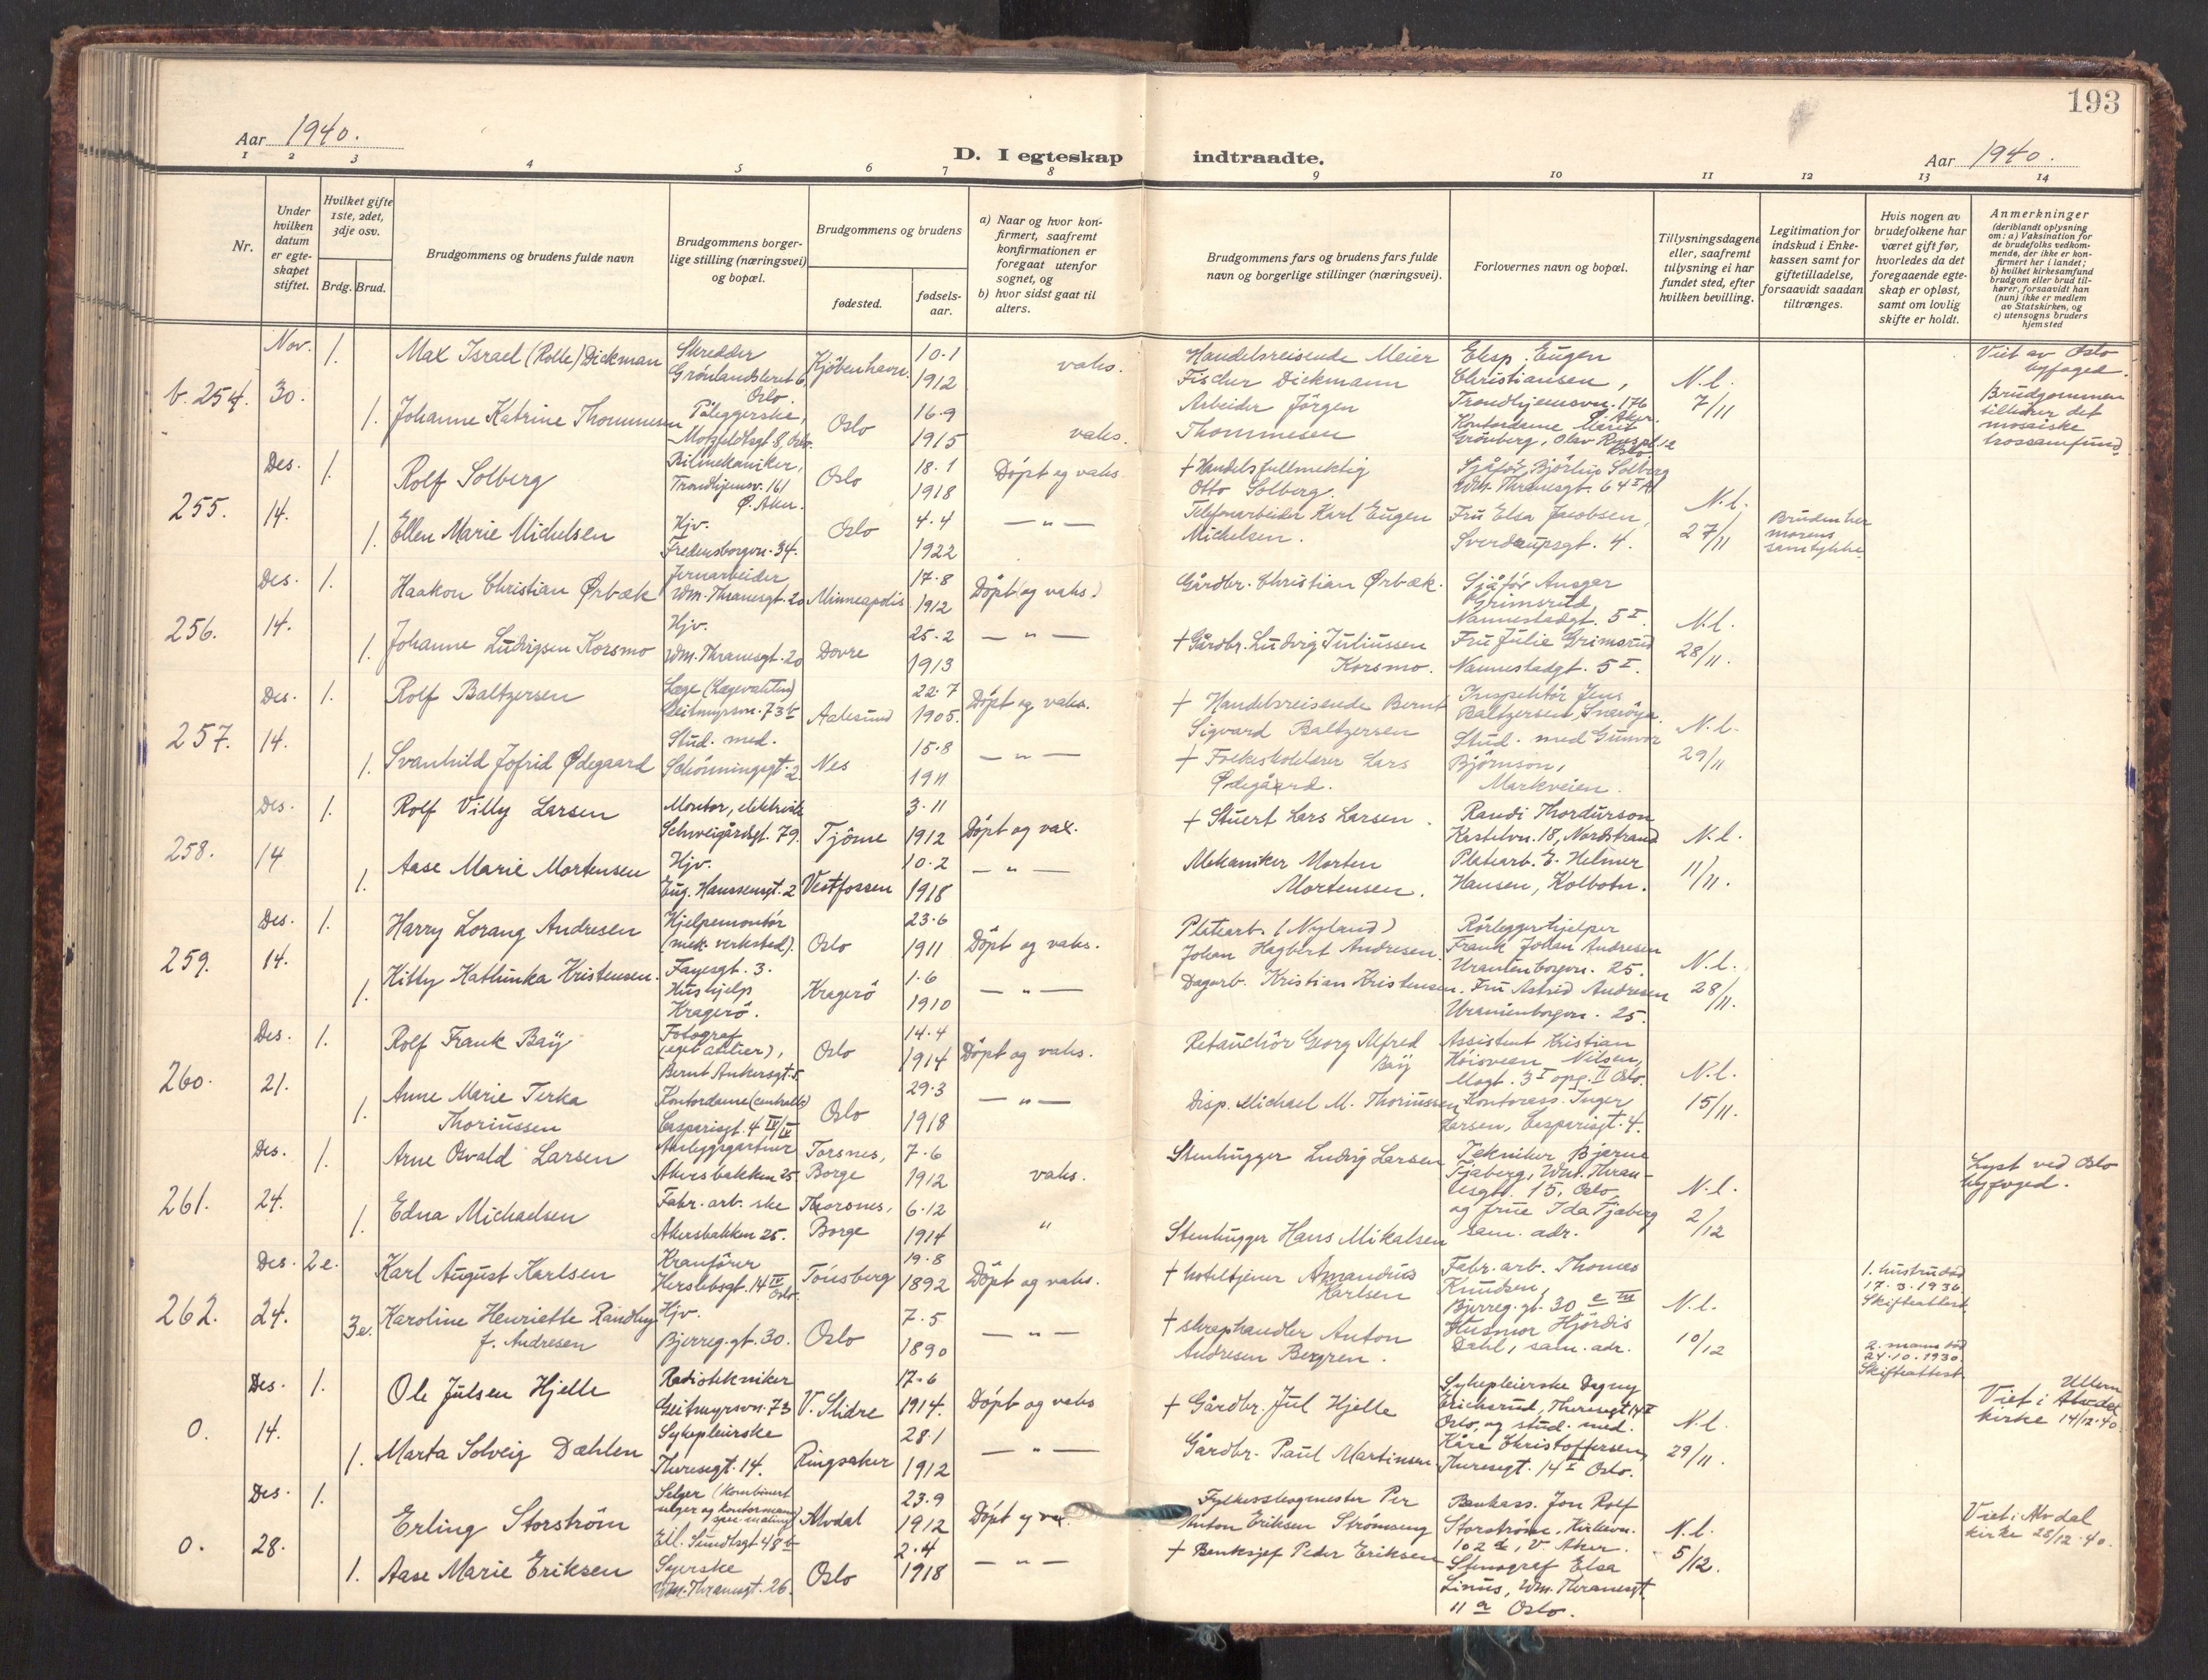 193
Aar 1940.
D. I egteskap indtraadte.
Aar 1940.
1 2 3 4 5 6 7 8 9 10 11 12 13 14
Nr.
Under hvilken datum er egteskapet stiftet.
Hvilket gifte 1ste, 2det, 3dje osv.
Brdg. Brud.
Brudgommens og brudens fulde navn
Brudgommens borgerlige stilling (næringsvei) og bopæl.
Brudgommens og brudens
fødested.
fødselsaar.
a) Naar og hvor konfirmert, saafremt konfirmationen er foregaat utenfor sognet, og
b) hvor sidst gaat til alters.
Brudgommens fars og brudens fars fulde navn og borgerlige stillinger (næringsvei).
Forlovernes navn og bopæl.
Tillysningsdagene eller, saafremt tillysning ei har fundet sted, efter hvilken bevilling.
Legitimation for indskud i Enkekassen samt for giftetilladelse, forsaavidt saadan tiltrænges.
Hvis nogen av brudefolkene har været gift før, hvorledes da det foregaaende egteskap er opløst, samt om lovlig skifte er holdt.
Anmerkninger (deriblandt oplysning om: a) Vaksination for de brudefolks vedkommende, der ikke er konfirmert her i landet; b) hvilket kirkesamfund brudgom eller brud tilhører, forsaavidt han (hun) ikke er medlem av Statskirken, og c) utensogns bruders hjemsted
b. 254. Nov. 30. 1. Max Israel (Rolle) Dickman
Skredder Grönlandsleret 6, Oslo.
Kjöbenhavn. 10-1 1912 vaks.
Handelsreisende Meier Fischer Dickmann
Eksp. Eugen Christiansen, Trondhjemsvn. 176 Ø. Aker.
N.l. 7/11
Viet av Oslo byfoged.
Brudgommen tilhører det mosaiske trossamfund.
1. Johanne Katrine Thommesen
Påleggerske, Motzfeldtsgt. 8, Oslo.
Oslo 16-9 1915 vaks.
Arbeider Jörgen Thommesen
Kontordame Marit Grönberg, Olav Ryespl. 2 Oslo.
255. Des. 14. 1. Rolf Solberg
Bilmekaniker, Trondhjemsv. 161 Ø. Aker.
Oslo 18-1 1918 Döpt og vaks
+ Handelsfullmektig Otto Solberg.
Sjåför Björlup Solberg Wm. Thranesgt. 64 I A
N.l. 27/11
1. Ellen Marie Michelsen
Hjv. Fredensborgvn. 34.
Oslo 4-4 1922 — " —
Telefonarbeider Karl Eugen Michelsen.
Fru Elsa Jacobsen, Sverdrupsgt. 4.
Bruden her morens samtykke
256. Des. 14. 1. Haakon Christian Ørbæk
Jernarbeider, Wm. Thranesgt. 20
Minneapolis 17-8 1912 Döpt (og vaks.)
Gårdbr. Christian Ørbæk.
Sjåför Ansgar Grimsrud, Nannestadgt. 5 I.
N.l. 28/11.
1. Johanne Ludvigsen Korsmo
Hjv. Wm. Thranesgt. 20
Dovre 25-2 1913 — " —
+ Gårdbr. Ludvig Juliussen Korsmo.
Fru Julie Grimsrud Nannestadgt. 5 I.
257. Des. 14. 1. Rolf Baltzersen
Læge (Lægevakten) Geitmyrsvn. 73 b
Aalesund 22-7 1905. Döpt og vaks.
+ Handelsreisende Bernt Sigvard Baltzersen
Inspektör Jens Baltzersen, Snaröya.
N.l. 29/11
1. Svanhild Jofrid Ødegaard
Stud. med. Schönningsgt. 2
Nes 15-8 1911 — " —
+ Folkeskolelærer Lars Ødegård.
Stud. med Gunvor Björnson, Markveien.
258. Des. 14 1. Rolf Villy Larsen
Montör, elektrisk Schweigårdsgt. 79.
Tjöme 3-11 1912 Döpt og vax.
+ Stuert Lars Larsen.
Randi Thordurson Kastelvn. 18, Nordstrand
N.l. 11/11.
1. Aase Marie Mortensen
Hjv. Eug. Hanssensgt. 2
Vestfossen 10-2 1918 — " —
Mekaniker Morten Mortensen.
Platearb. E. Helmer Hansen, Kolbotn.
259. Des. 14. 1. Harry Lorang Andresen
Hjelpemontör (mek. verksted). Fayesgt. 3.
Oslo 23-6 1911 Döpt og vaks.
Platearb. (Nyland) Johan Hagbert Andresen.
Rörleggerhjelper Frank Johan Andresen Uranienborgvn. 25.
N.l. 28/11.
1. Kitty Kathinka Kristensen.
Hushjelp Kragerö.
Kragerö 1-6 1910 — " —
Dagarb. Kristian Kristensen.
Fru Astrid Andresen Uranienborgvn. 25.
260. Des. 21. 1. Rolf Frank Baÿ
Fotograf (eget atelier), Bernt Ankersgt. 5.
Oslo 14-4 1914 Döpt og vaks.
Retauchör Georg Alfred Baÿ
Assistent Kristian Höisveen Nilsen, Mogt. 3 I opg. II Oslo.
N.l. 15/11.
1. Anne Marie Terka Thoriussen
Kontordame (centralb) Casparisgt. 4 IV/IV
Oslo 29-3 1918 — " —
Disp. Michael M. Thoriussen
Kontorass. Inger Larsen, Casparisgt. 4.
261. Des. 24. 1. Arne Osvald Larsen
Anleggsgartner Akersbakken 25
Torsnes, Borge 7-6 1912 vaks.
Stenhugger Ludvig Larsen
Tekniker Bjarne Tjøberg, Wm. Thranesgt. 15, Oslo, og frue Ida Tjøberg sam. adr.
N.l. 2/12
Lyst ved Oslo byfoged.
1. Edna Michaelsen
Fabr. arb.ske Akersbakken 25.
Thorsnes, Borge 6-12 1914 "
Stenhugger Hans Mikalsen
262. Des. 24. 2e. Karl August Karlsen
Kranförer Herslebsgt. 14 IV Oslo.
Tönsberg 19-8 1892 Döpt og vaks.
+ hoteltjener Amandus Karlsen
Fabr. arb. Thomas Knudsen, Bjerreg. gt. 30 c III
N.l. 10/12
1. hustru död 17.3.1936 Skifteattest.
3e. Karoline Henriette Randby f. Andresen
Hjv. Bjerreg. gt. 30.
Oslo 7-5 1890 — " —
+ skraphandler Anton Andresen Bergren.
Husmor Hjördis Dahl, sam. adr.
2. mann död 24.10.1930 Skifteattest
0. Des. 14. 1. Ole Julsen Hjelle
Radiotekniker Geitmyrsvn. 73
V. Slidre 17-6 1914. Döpt og vaks
+ Gårdbr. Jul Hjelle
Sykepleierske Dagny Erichsrud, Theresegt. 14 I Oslo, og stud. med. Kåre Christoffersen, Theresegt. 14 I Oslo.
N.l. 29/11.
Ullern
Viet i kirke 14/12-40.
1. Marta Solveig Dæhlen
Sykepleierske Theresegt. 14.
Ringsaker 28-1 1912 — " —
Gårdbr. Paul Martinsen
0. Des. 28. 1. Erling Storström
Selger (kombinert selger og kontormann) Eil. Sundtsgt 48 b
Alvdal 23-9 1912 Döpt og vax.
Fylkesskogmester Per Anton Eriksen Strömseng
Bankass. Jon Rolf Storström, Kirkevn. 102 d, V. Aker.
N.l. 5/12.
Viet i Alvdal kirke 28/12-40.
1. Aase Marie Eriksen
Syerske Wm. Thranesgt. 26.
Oslo 2-4 1918 — " —
+ Banksjef Peder Eriksen
Stenograf Elsa Linus, Wm. Thranesgt. 11 a Oslo.